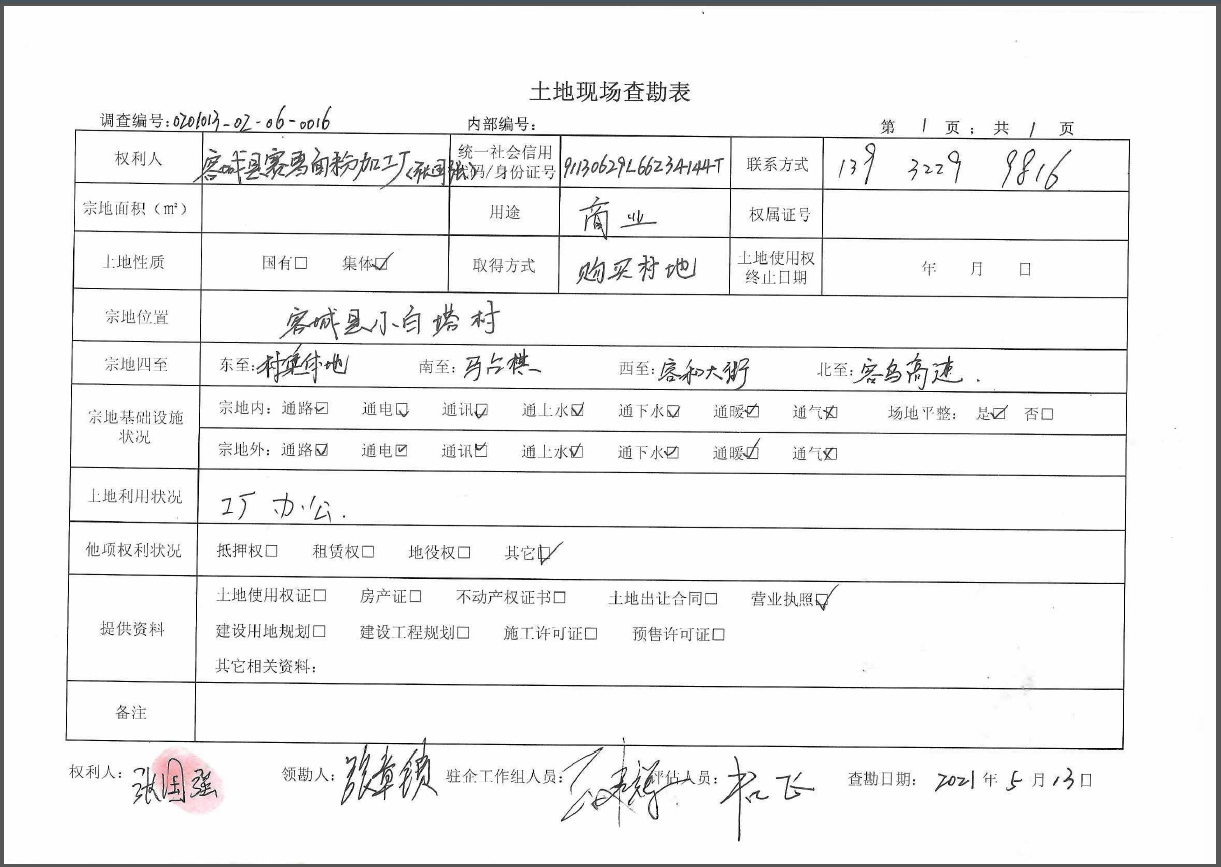 土地现场查勘表
调查编号:0201013-02-06-0016 内部编号: 第 1 页; 共 1 页
权利人 容城县赛雪面粉加工厂(张国强) 统一社会信用代码/身份证号 91130629L6623A144T 联系方式 139 3229 9816
宗地面积(㎡) 用途 商业 权属证号
土地性质 国有□ 集体☑ 取得方式 购买村地 土地使用权终止日期 年 月 日
宗地位置 容城县小白塔村
宗地四至 东至:村集体地 南至:马占棋 西至:容和大街 北至:容乌高速.
宗地基础设施状况 宗地内: 通路☑ 通电☑ 通讯☑ 通上水☑ 通下水☑ 通暖☑ 通气☑ 场地平整: 是☑ 否□
宗地外: 通路☑ 通电☑ 通讯☑ 通上水☑ 通下水☑ 通暖☑ 通气☑
土地利用状况 工厂办公.
他项权利状况 抵押权□ 租赁权□ 地役权□ 其它☑
提供资料 土地使用权证□ 房产证□ 不动产权证书□ 土地出让合同□ 营业执照☑
建设用地规划□ 建设工程规划□ 施工许可证□ 预售许可证□
其它相关资料:
备注
权利人: 张国强 领勘人: 张章锁 驻企工作组人员: 评估人员: 查勘日期: 2021年5月13日